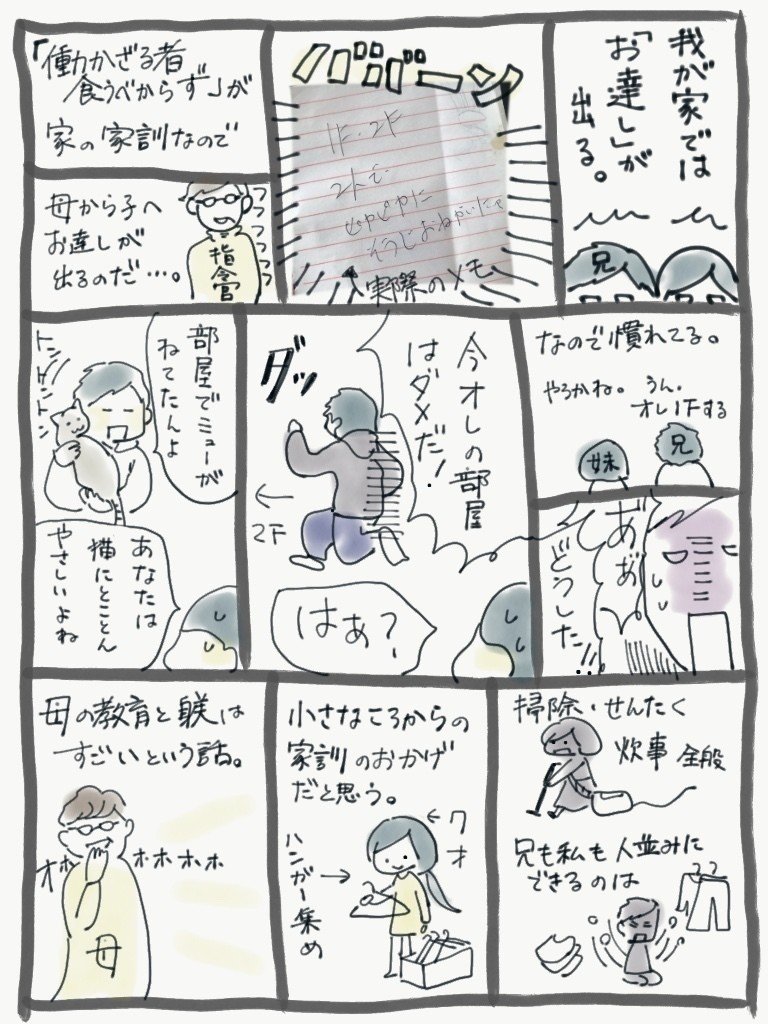 我が家では
「お達し」が
出る。
兄
ババーン
1F・2F
2人で
ぴかぴかに
そうじおねがい
実際のメモ
「働かざる者
食うべからず」が
家の家訓なので
母から子へ
お達しが
出るのだ…。
フフフフフ
指令官
なので慣れてる。
やろかね。
うん。
オレ1Fする
妹
兄
どうした!!
今オレの部屋
はダメだ!
ダッ
←
2F
はぁ?
部屋でミューが
ねてたんよ
トントントン
あなたは
猫にとことん
やさしいよね
掃除・せんたく
炊事 全般
兄も私も人並みに
できるのは
小さなころからの
家訓のおかげ
だと思う。
←7才
ハンガー集め→
母の教育と躾は
すごいという話。
オホホホホホ
母